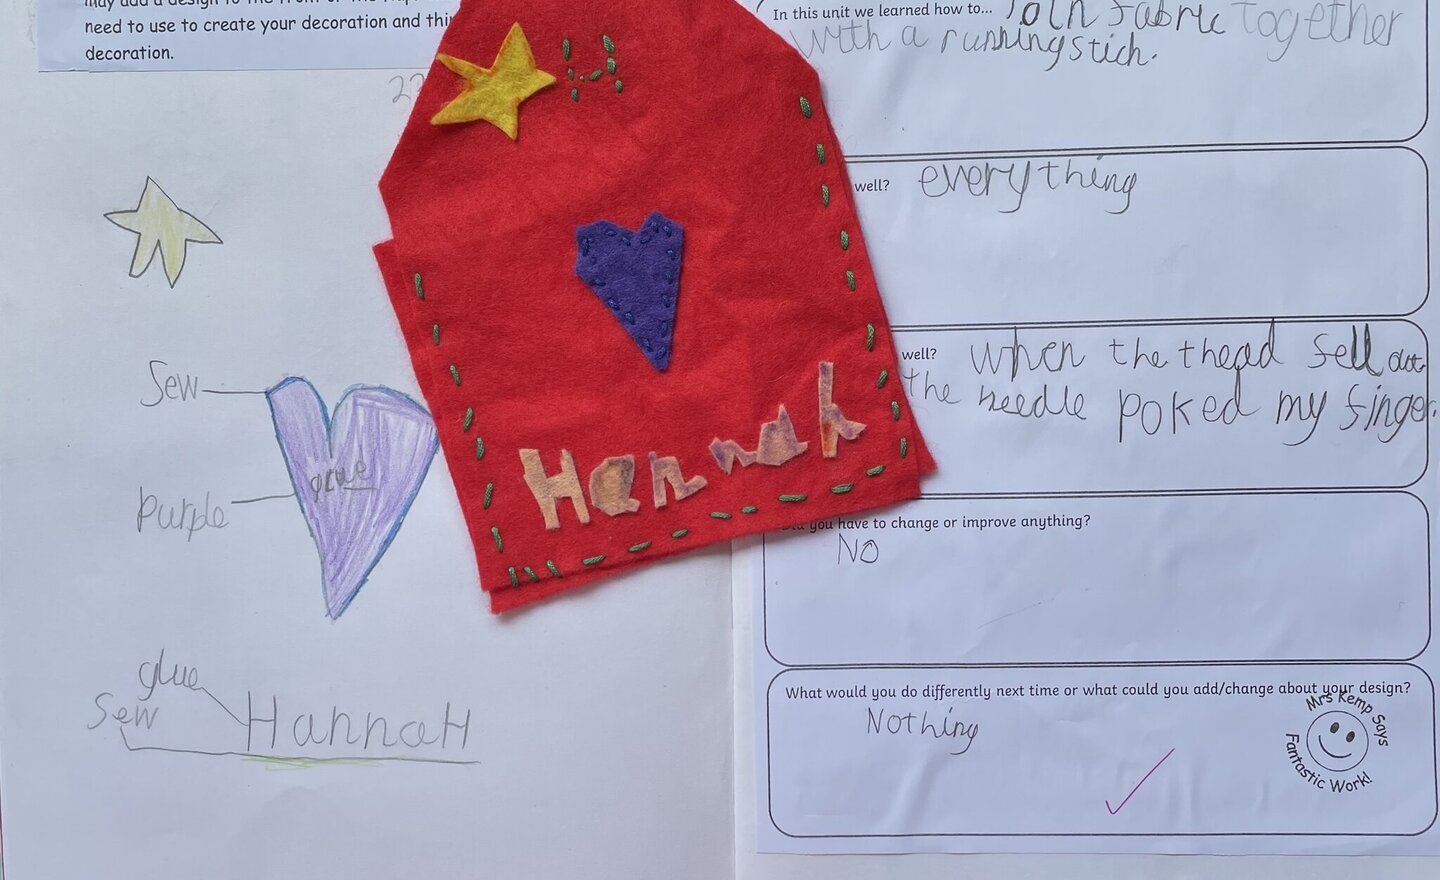 need to use to create your decoration and
decoration.
Sew
Purple
glue
glue
Sew
HannaH
H
Hannah
In this unit we learned how to... Join fabric together
with a running stich.
well? everything
well? when the thead fell out
the needle poked my finger.
you have to change or improve anything?
NO
What would you do differently next time or what could you add/change about your design?
Nothing
Mrs Kemp Says
Fantastic Work!